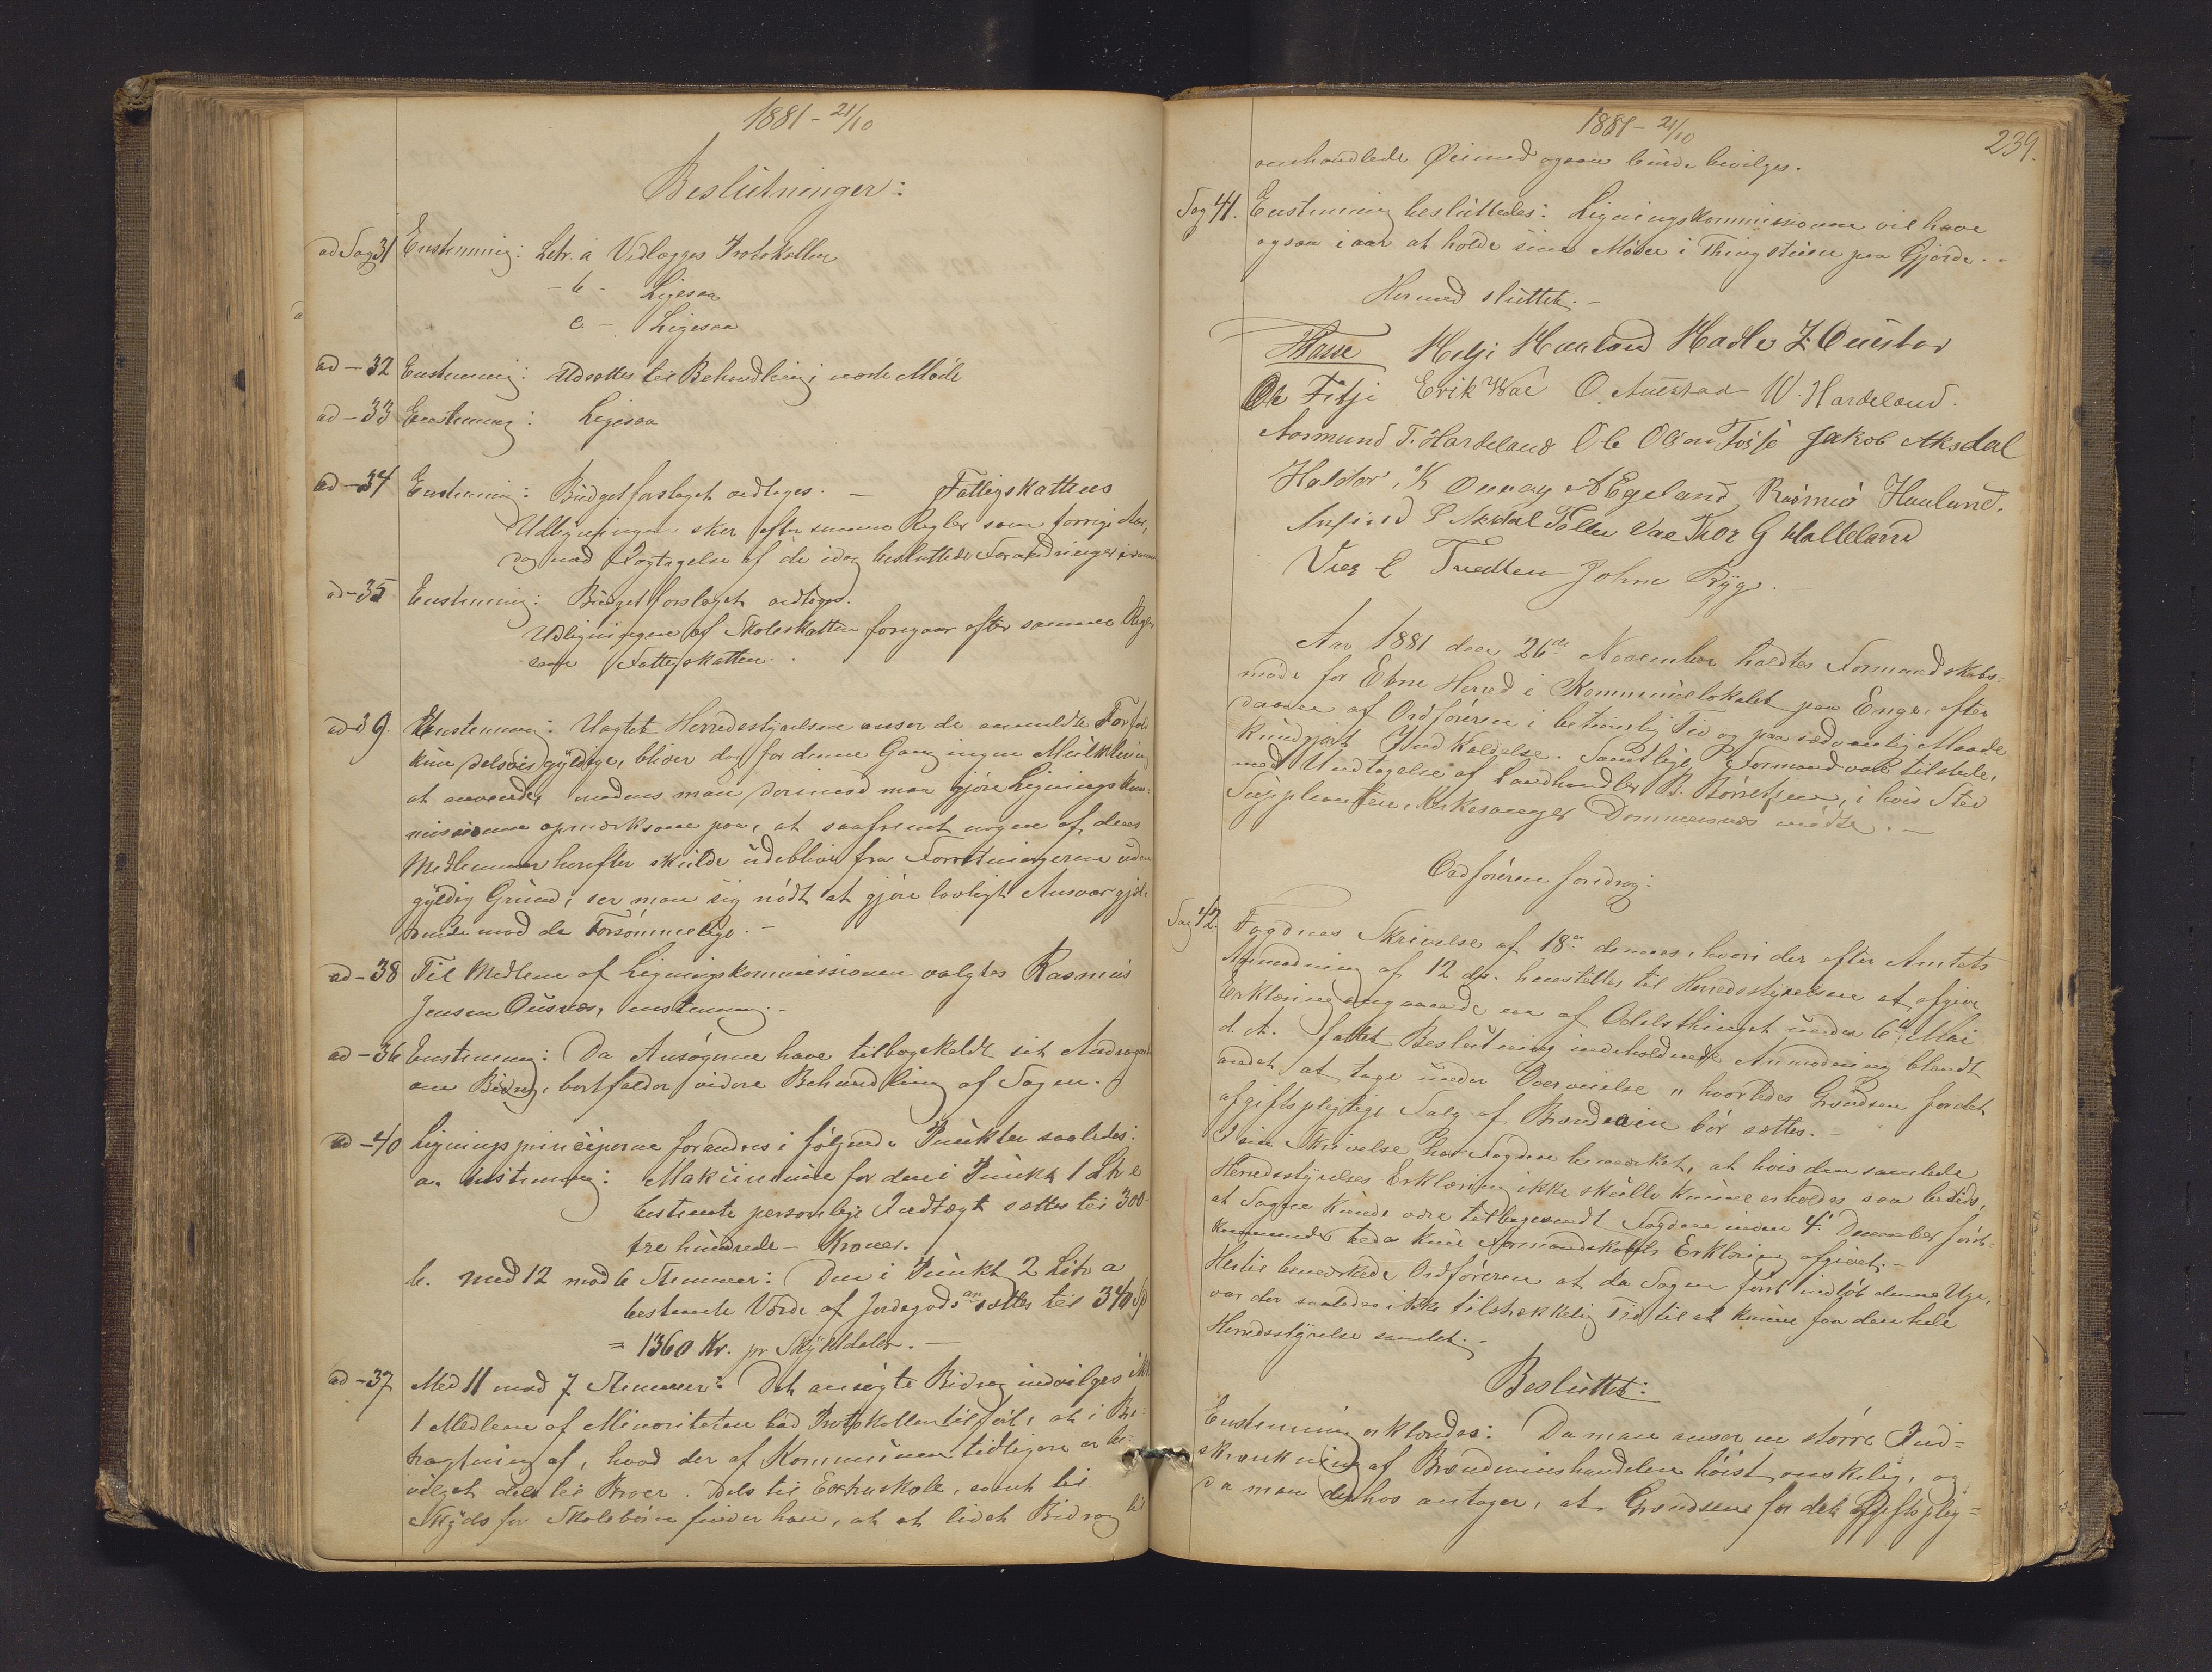 1881 - 21/10
Beslutninger:
ad Sag 31 Enstemmig: Litr. a Vedlægges Protokollen
- b - Ligesaa
c - Ligesaa
ad - 32 Enstemmig: Udsættes til Behandling i næste Møde
ad - 33 Enstemmig: Ligesaa
ad - 34 Enstemmig: Budgetforslaget vedtages. — Fattigskattens
Udligningen sker efter samme Regler som forrige Aar,
dog med Iagtagelse af de idag besluttede Forandringer
ad - 35 Enstemmig: Budgetforslaget vedtages.
Udligningen af Skoleskatten foregaar efter samme Regler
som Fattigskatten.
ad - 39. Enstemmig: Uagtet Herredsstyrelsen anser de anmeldte Forfald
kun delvis gyldige, bliver dog for denne Gang ingen Mulktering
at anvende, medens man derimod maa gjøre Ligningskom-
missionen opmærksom paa, at saafremt nogen af deres
Medlemmer herefter skulde udeblive fra Forretningerne uden
gyldig Grund, ser man sig nødt at gjøre lovligt Ansvar gjæl-
dende mod de Forsømmelige. -
ad - 38 Til Medlem af Ligningskommissionen valgtes Rasmus
Jensen Øusnes, enstemmig. -
ad - 36 Enstemmig: Da Ansøgerne have tilbagekaldt sit Andragende
om Bidrag, bortfalder videre Behandling af Sagen.
ad - 40 Ligningsprinciperne forandres i følgende Punkter saaledes:
a. Enstemmig: Maksimum for den i Punkt 1 Litr e
bestemte personlige Indtægt sættes til 300 -
tre hundrede - Kroner.
b. med 12 mod 6 Stemmer: Den i Punkt 2 Litr a
bestemte Værdi af Jordegods ansættes til 340 Sp
= 1360 Kr. pr Skylddaler. —
ad - 37 Med 11 mod 7 Stemmer: Det ansøgte Bidrag indvilges ikke
1 Medlem af Minoriteten bad Protokollen tilført, at i Be-
tragtning af, hvad der af Kommunen tidligere er be-
vilget dels til Broer, dels til Extraskole, samt til
Skyds for Skolebørn finder han, at et lidet Bidrag til
1881 - 21/10
239.
omhandlede Øiemed ogsaa burde bevilges.
Sag 41. Enstemmig besluttedes: Ligningskommissionen vil have
ogsaa i aar at holde sine Møder i Thingstuen paa Gjerde. -
Hermed sluttet. -
Helji Haaland Hadle
Ole Fitji Erik O. Austad W. Hardeland.
Aasmund T. Hardeland Ole Olson Jakob Aksdal
Haldor K A Egeland Rasmus Hauland.
Aksdal Tollev Vae Thor G Halleland
Tvedten Johne Ryg.
Aar 1881 den 26de November holdtes Formandskabs-
møde for Etne Herred i Kommunelokalet paa Enge, efter
daarom af Ordføreren i betimelig Tid og paa sædvanlig Maade
kundgjort Indkaldelse. Samtlige Formænd var tilstede,
med Undtagelse af Landhandler B. Børretzen, i hvis Sted
Suppleanten, Kirkesanger Dommersnes mødte. —
Ordføreren foredrog:
Sag 42. Fogdens Skrivelse af 18de dennes, hvori der efter Amtets
Anmodning af 12 ds. henstilles til Herredsstyrelsen at afgive
Erklæring angaaende en af Odelsthinget under 6te Mai
d. A. fattet Beslutning indeholdende Anmodning blandt
andet, at tage under Overveielse " hvorledes Grændsen for det
afgiftspligtige Salg af Brændevin bør sættes. -
I sin Skrivelse har Fogden bemærket, at hvis den samlede
Herredsstyrelses Erklæring ikke skulle kunne erholdes saa betids,
at Sagen kunde være tilbagesendt Fogden inden 4' December først-
kommende, bedes kun Formandskabets Erklæring afgivet. -
Hertil bemærkede Ordføreren at da Sagen først indløb denne Uge,
var der saaledes ikke tilstrækkelig Tid til at kunne faa den hele
Herredsstyrelse samlet. -
Besluttet:
Enstemmig erklæredes: Da man anser en større Ind-
skrænkning af Brændevinshandelen høist ønskelig, og
da man derhos antager, at Grændsene for det afgiftsplig-